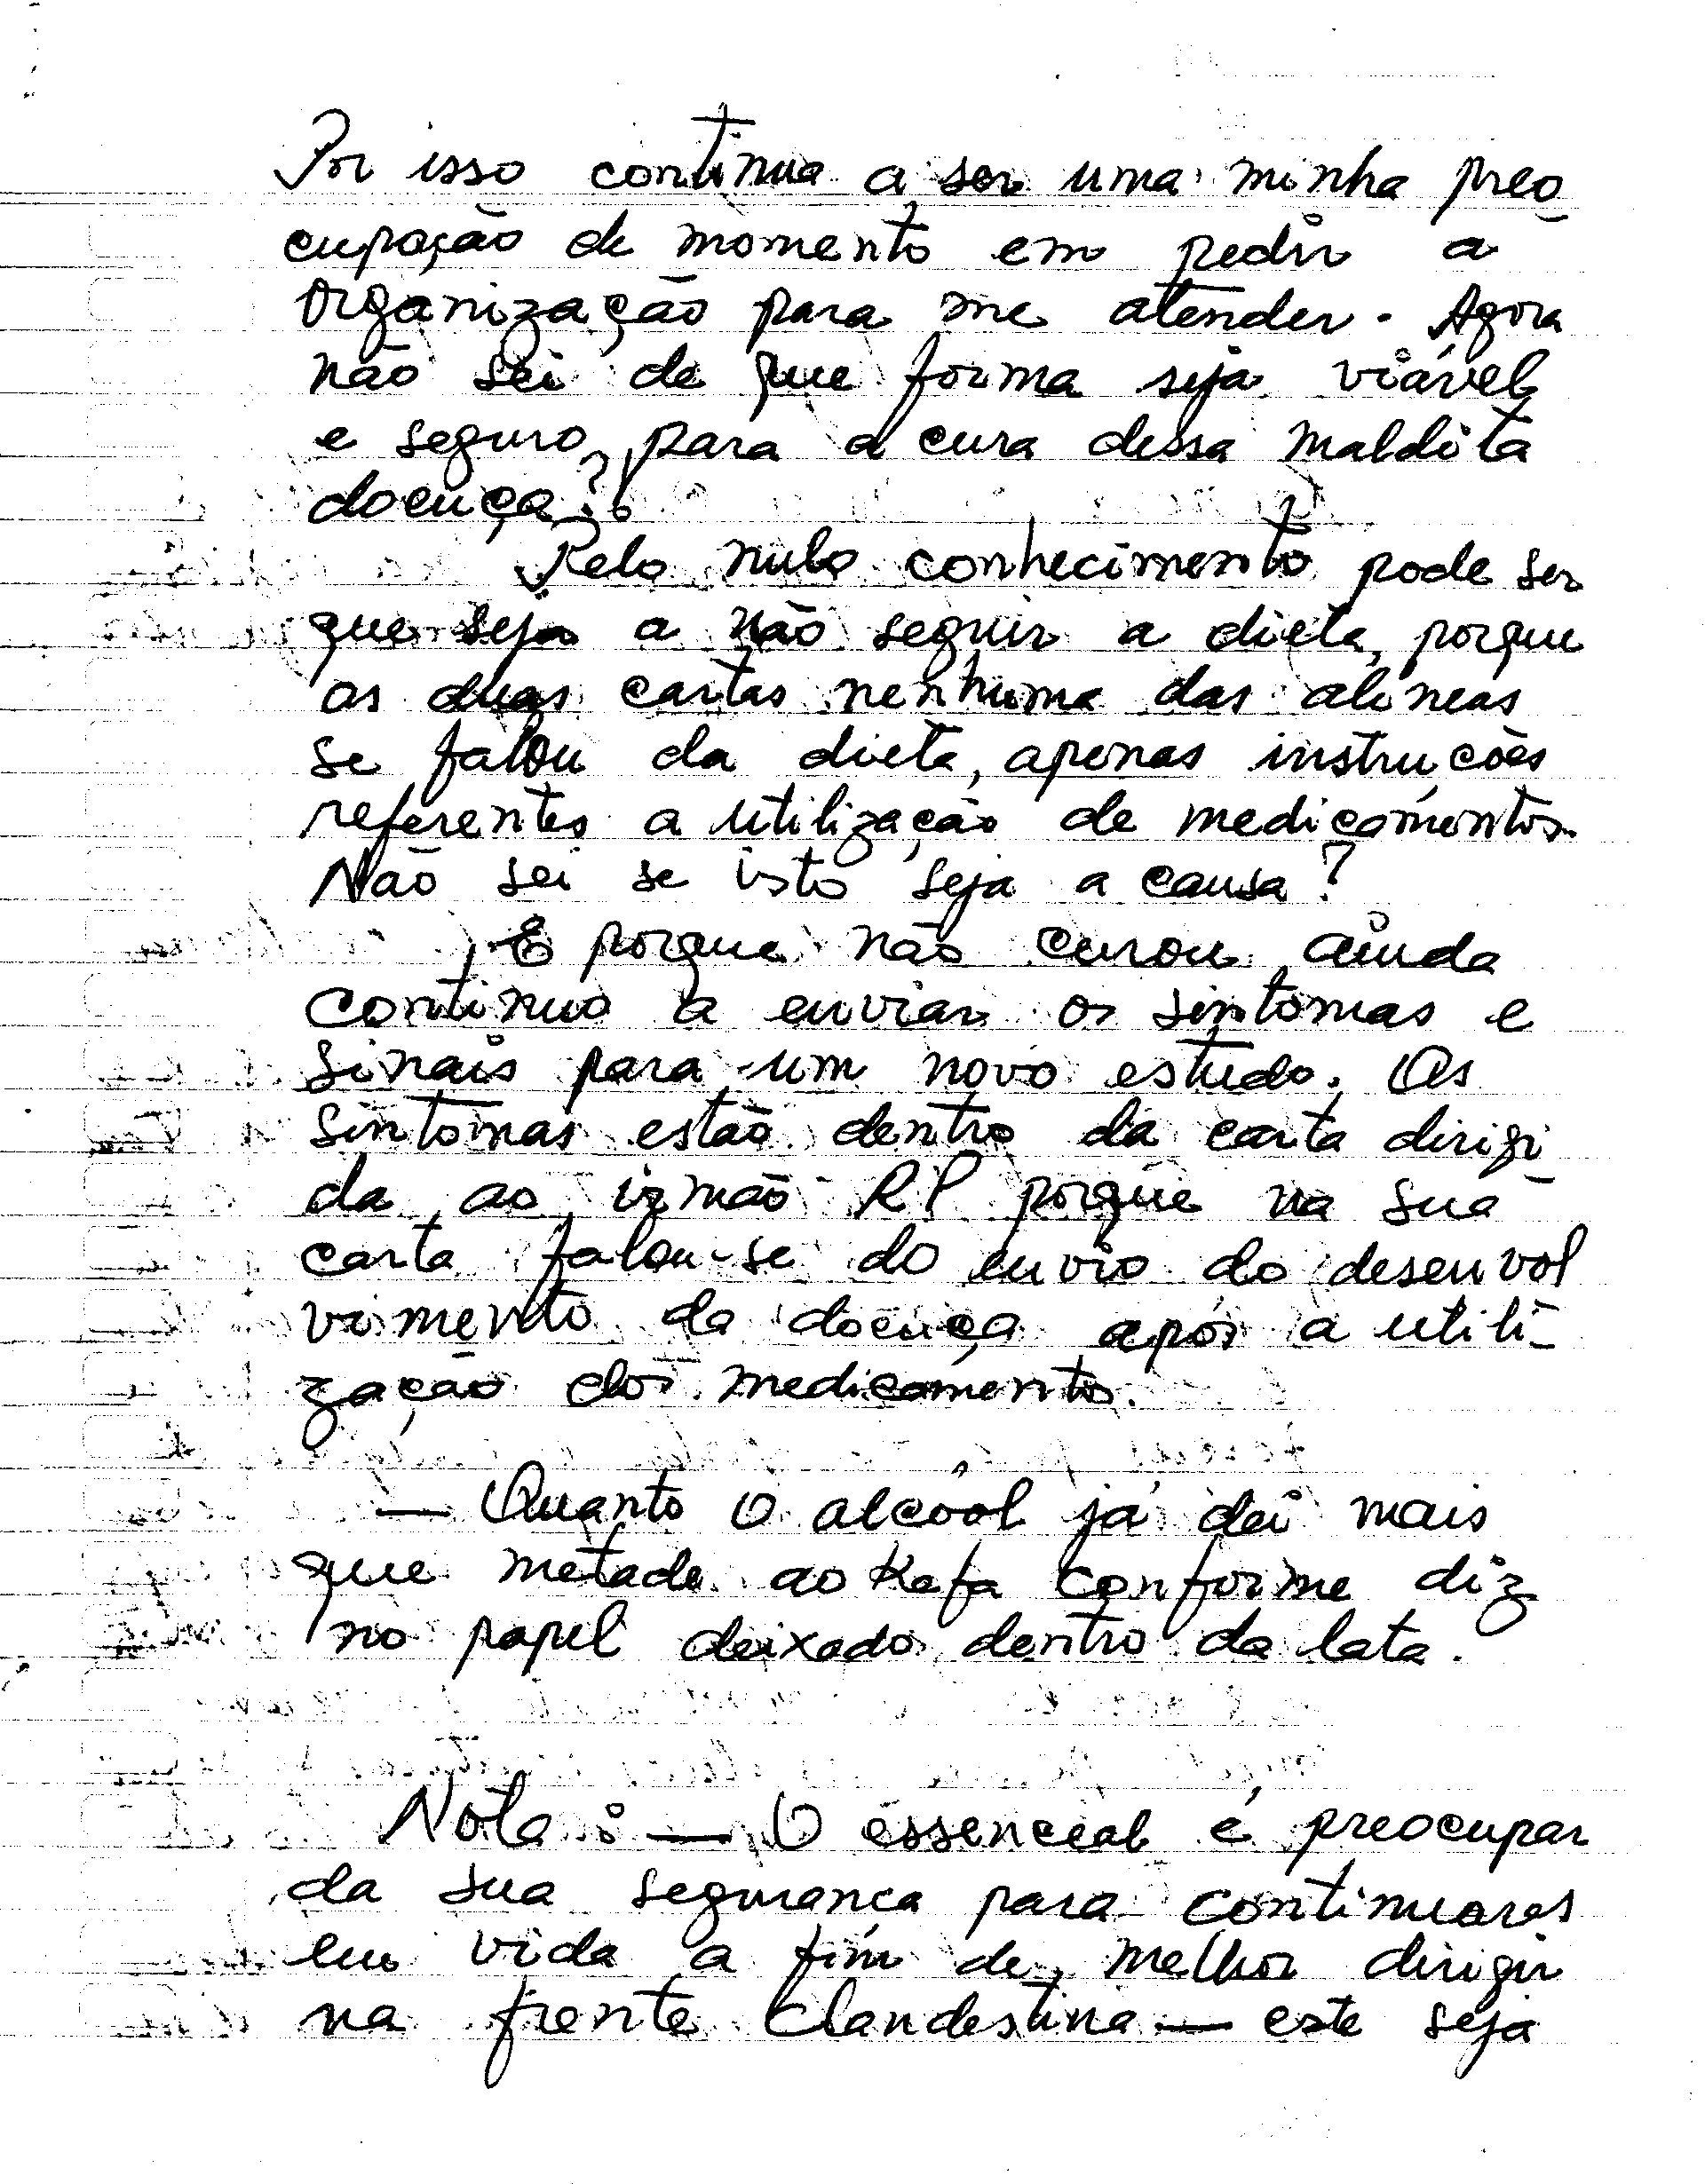 Por isso continua a ser uma minha preo
cupação de momento em pedir a
Organização para me atender. Agora
não sei de que forma seja viável
e seguro, para a cura dessa maldita
doença?
Pelo nulo conhecimento pode ser
que seja a não seguir a dieta, porque
as duas cartas nenhuma das alíneas
se falou da dieta, apenas instruções
referentes a utilização de medicamentos.
Não sei se isto seja a causa?
E porque não curou ainda
continuo a enviar os sintomas e
sinais para um novo estudo. Os
sintomas estão dentro da carta dirigi
da ao irmão RP porque na sua
carta falou-se do envio do desenvol
vimento da doença após a utili-
zação dos medicamentos.
— Quanto o alcoól já dei mais
que metade ao Kafa conforme diz
no papel deixado dentro da lata.
Nota: — O essencial é preocupar
da sua segurança para continuares
em vida a fim de melhor dirigir
na frente Clandestina — este seja